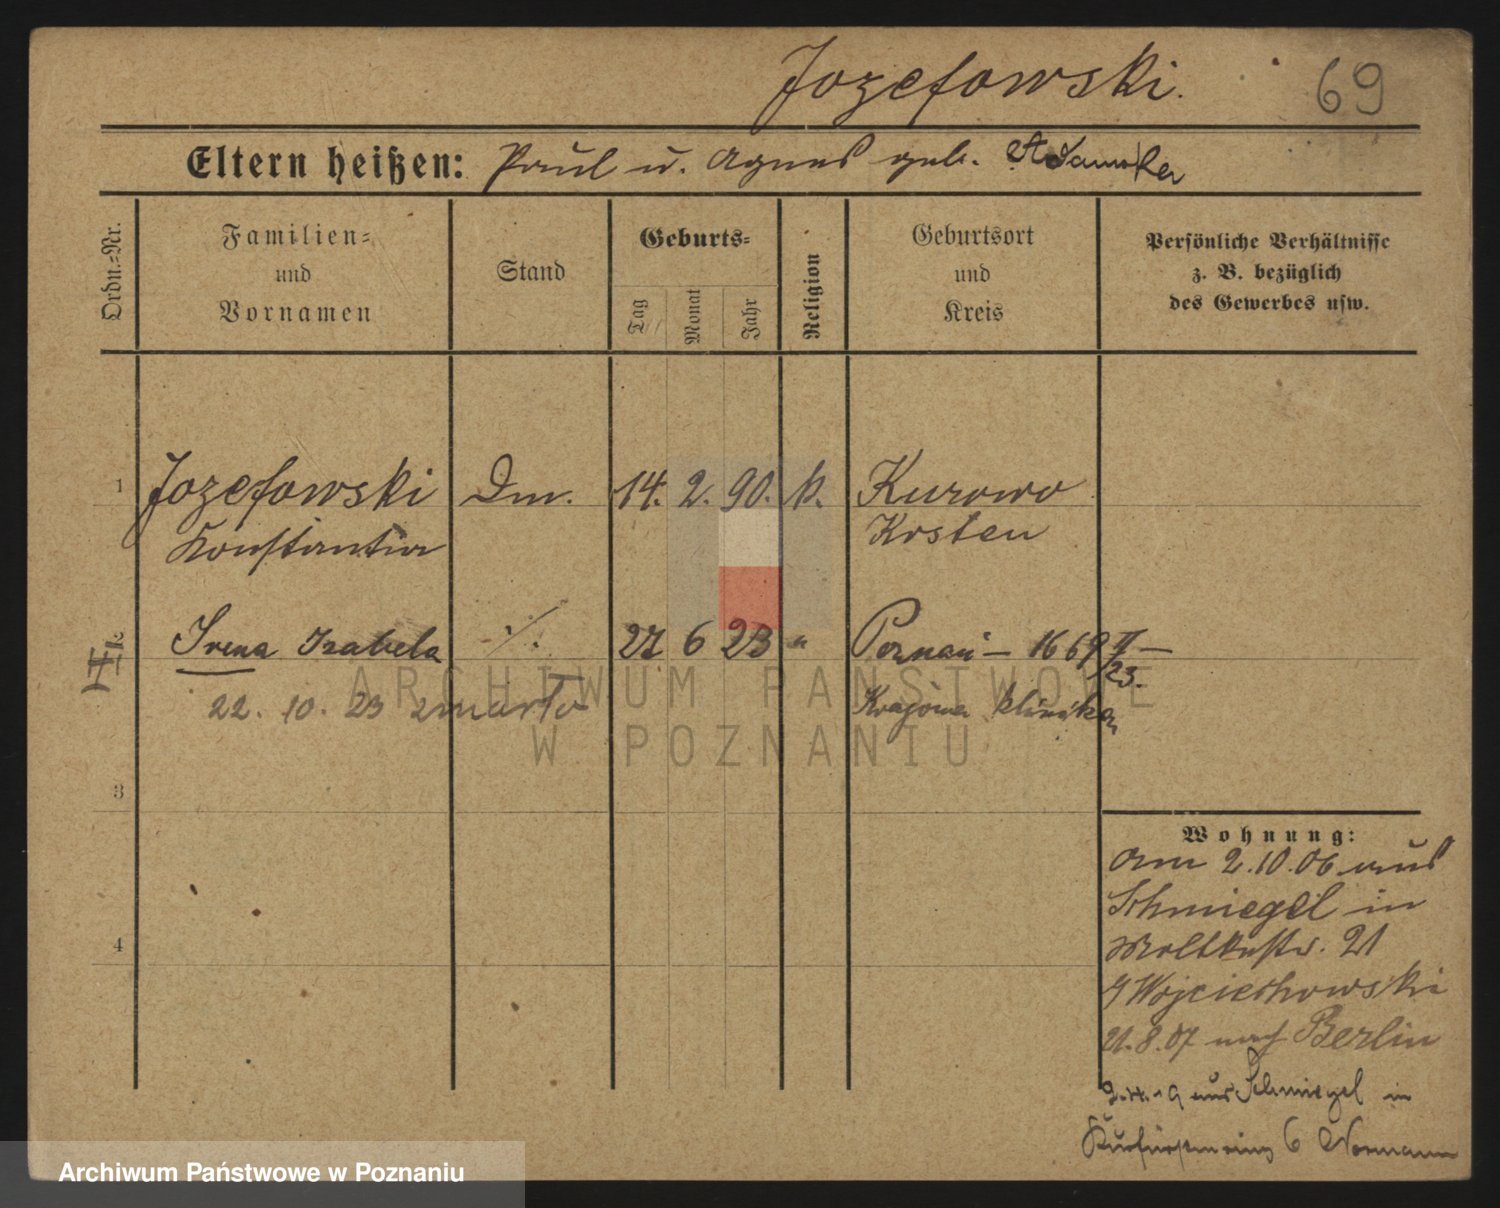 Jozefowski. 69
Eltern heißen: Paul u. Agnes geb. Adamska
Ordn.=Nr.
Familien=
und
Vornamen
Stand
Geburts=
Tag
Monat
Jahr
Religion
Geburtsort
und
Kreis
Persönliche Verhältnisse
z. B. bezüglich
des Gewerbes usw.
1 Jozefowski Dm. 14. 2. 90. k. Kurowo
Konstantia Kosten
2 Irena Izabela ./. 27 6 23 " Poznań – 1669 II –
/23.
II
22. 10. 23 zmarła Krajowa klinika
ARCHIWUM PAŃSTWOWE
W POZNANIU
3
4
Wohnung:
am 2.10.06 aus
Schmiegel in
Moltkestr. 21
b/ Wojciechowski
21.8.07 nach Berlin
aus Schmiegel in
Kurfürstenring 6 Normann
Archiwum Państwowe w Poznaniu